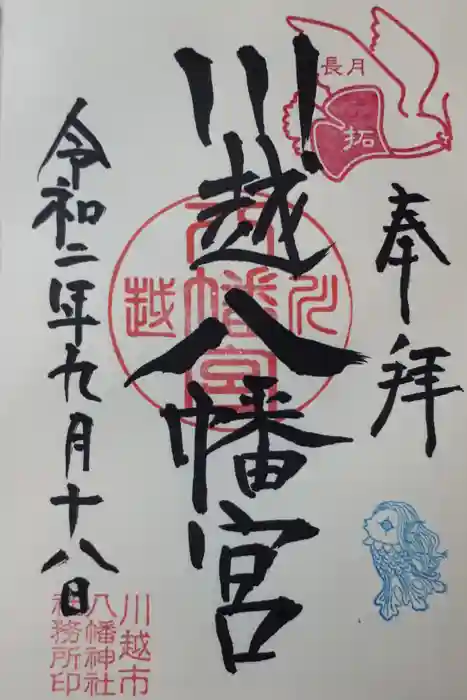 長月
拓
奉拝
川越八幡宮
川
八幡宮
越
令和二年九月十八日
川越市
八幡神社
社務所印